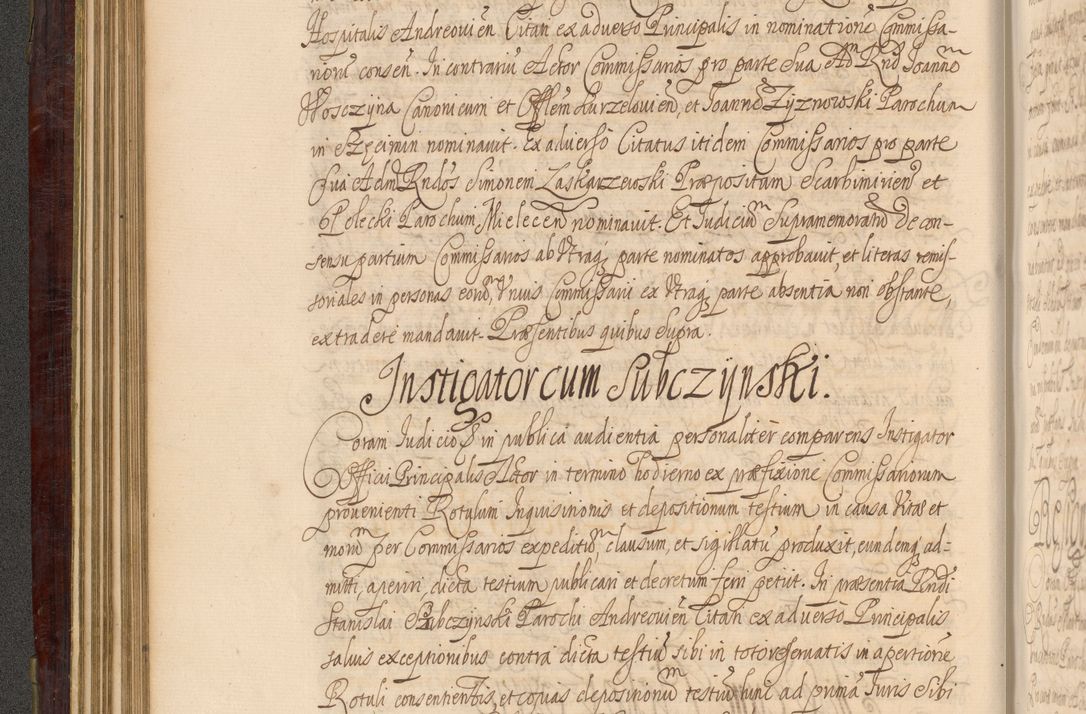 Hospitalis Andreovien Citati ex adverso Principalis in nominatione Commissa-
riorū consen. In contrariū Actor Commissarios pro parte sua Adm Rnd Joannē
Wosczyna Canonicum et Offlem Kurzelovien, et Joannē Zyznowski Parochum
in nominavit. Ex adverso Citatus itidem Commissarios pro parte
sua Adm Rndos Simonem Zaskarzewski Præpositum Scarbimirien et
Polecki Parochum Mielecen nominavit. Et Judiciū Supramemoratū de con-
sensu partium Commissarios ab utraq parte nominatos approbavit, et literas remis-
soriales in personas eorū, unius Commissarii ex utraq parte absentia non obstante,
extradere mandavit. Præsentibus quibus supra.
Instigator cum Subczynski.
Coram Judicio in publica audientia personaliter comparens Instigator
Officii Principalis Actor in termino hodierno ex præfixione Commissariorum
provenienti Rotulum Inquisitionis et depositionum testium in causa vitæ et
morū per Commissarios expeditū, clausum, et sigillatū produxit, eundemq ad-
mitti, aperiri, dicta testium publicari et decretum ferri petiit. In præsentia Rndi
Stanislai Subczynski Parochi Andreovien Citati ex adverso Principalis
salvis exceptionibus contra dicta testiū sibi in toto reservatis in apertionē
Rotuli consentientis, et copias depositionū testiū hunc ad primā Juris sibi